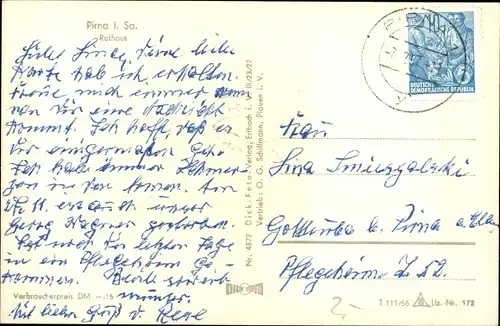 Pirna i. Sa.
Rathaus
Liebe Lina, Deine liebe
Karte hab ich erhalten.
Freue mich immer wenn
von Dir eine Nachricht
kommt. Ich hoffe daß es
Dir einigermaßen geht.
Ich habe immer Schmer-
zen in den Armen. Am
ist unser
Georg Wagner gestorben.
Hat noch die letzten Tage
in ein Pflegeheim ge-
kommen. Bleib
munter.
Mit lieben Gruß v.
Verbraucherpreis DM -.15
Nr. 4877 Dick-Foto-Verlag, Erlbach i. V. III/23/27
Vertrieb: O. G. Schiffmann, Plauen i. V.
DICK FOTO
PIRNA
DEUTSCHE
DEMOKRATISCHE REPUBLIK
Frau
Lina Smieszalski
Gottleuba b. Pirna a. Elbe
Pflegeheim
2-
T 111/56 Liz.-Nr. 172